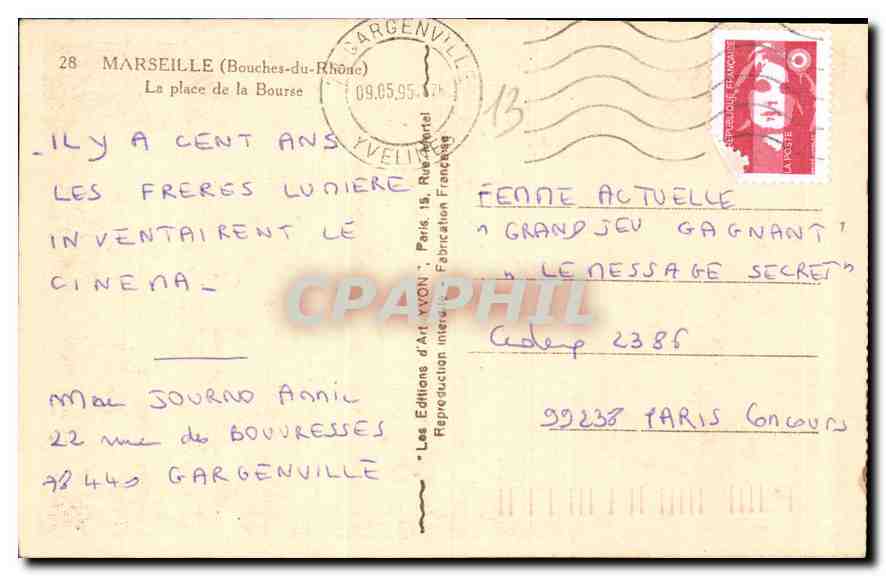 28 MARSEILLE (Bouches-du-Rhône)
La place de la Bourse
GARGENVILLE
09.05.95
YVELINES
13
RÉPUBLIQUE FRANÇAISE
LA POSTE
IL Y A CENT ANS
LES FRERES LUMIÈRE
INVENTAIRENT LE
CINEMA_
Mme JOURNO Annie
22 rue des BOUVRESSES
78440 GARGENVILLE
"Les Editions d'Art YVON", Paris, 15, Rue Martel
Reproduction interdite Fabrication Française
FEMME ACTUELLE
" GRAND JEU GAGNANT "
" LE MESSAGE SECRET "
Cedex 2386
99238 PARIS Concours
CPAPHIL